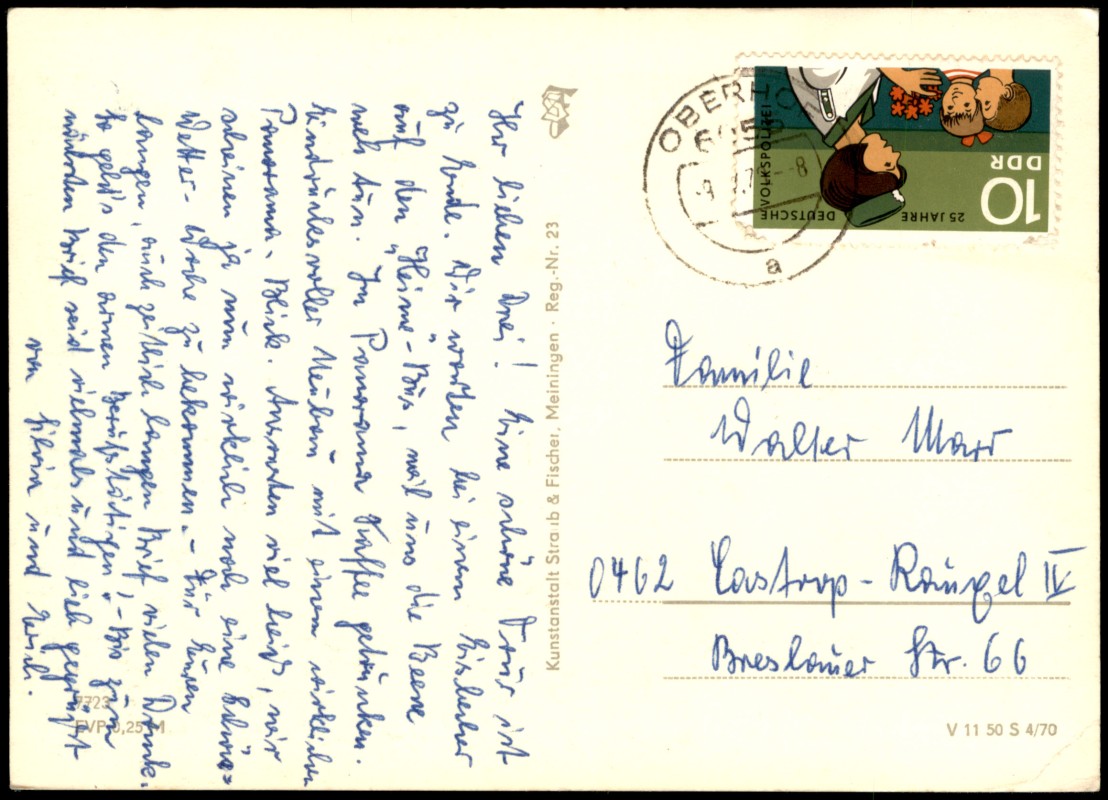 Ihr lieben Drei! Eine schöne Tour ist
zu Ende. Wir warten bei einem Eisbecher
auf den "Heim"-Bus, weil uns die Beene
weh tun. Im Panorama Kaffee getrunken.
Eindrucksvoller Neubau mit einem wirklichen
Panorama-Blick. Ansonsten viel heiß, wir
scheinen ja nun wirklich noch eine Schön-
Wetter-Woche zu bekommen. - Für Euren
langen, auch zeitlich langen Brief, vielen Dank.
So geht's den armen "Berufstätigen". - Bis zum
nächsten Brief seid vielmals und lieb gegrüßt
von Silvia und Gerh.
7723
EVP 0,25 M
Kunstanstalt Straub & Fischer, Meiningen · Reg.-Nr. 23
OBERHO
a
25 JAHRE
DEUTSCHE
VOLKSPOLIZEI
DDR
10
Familie
Walter Marr
0462 Castrop-Rauxel IV
Breslauer Str. 66
V 11 50 S 4/70